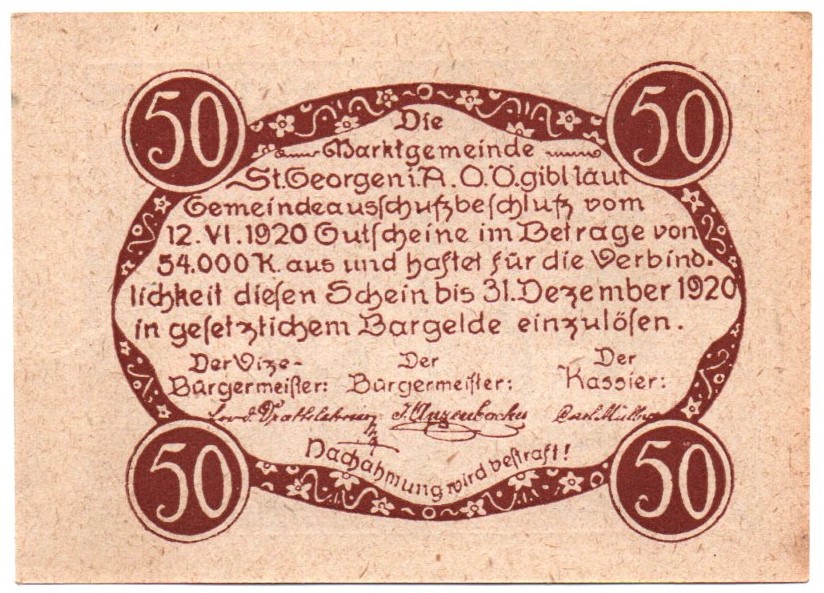 50 50
Die
Marktgemeinde
St.Georgen i.A.O.Ö. gibt laut
Gemeindeausschußbeschluß vom
12.VI.1920 Gutscheine im Betrage von
54.000 K. aus und haftet für die Verbind-
lichkeit diesen Schein bis 31. Dezember 1920
in gesetzlichem Bargelde einzulösen.
Der Vize- Der Der
Bürgermeister: Bürgermeister: Kassier:
Carl Müllner
Nachahmung wird bestraft!
50 50